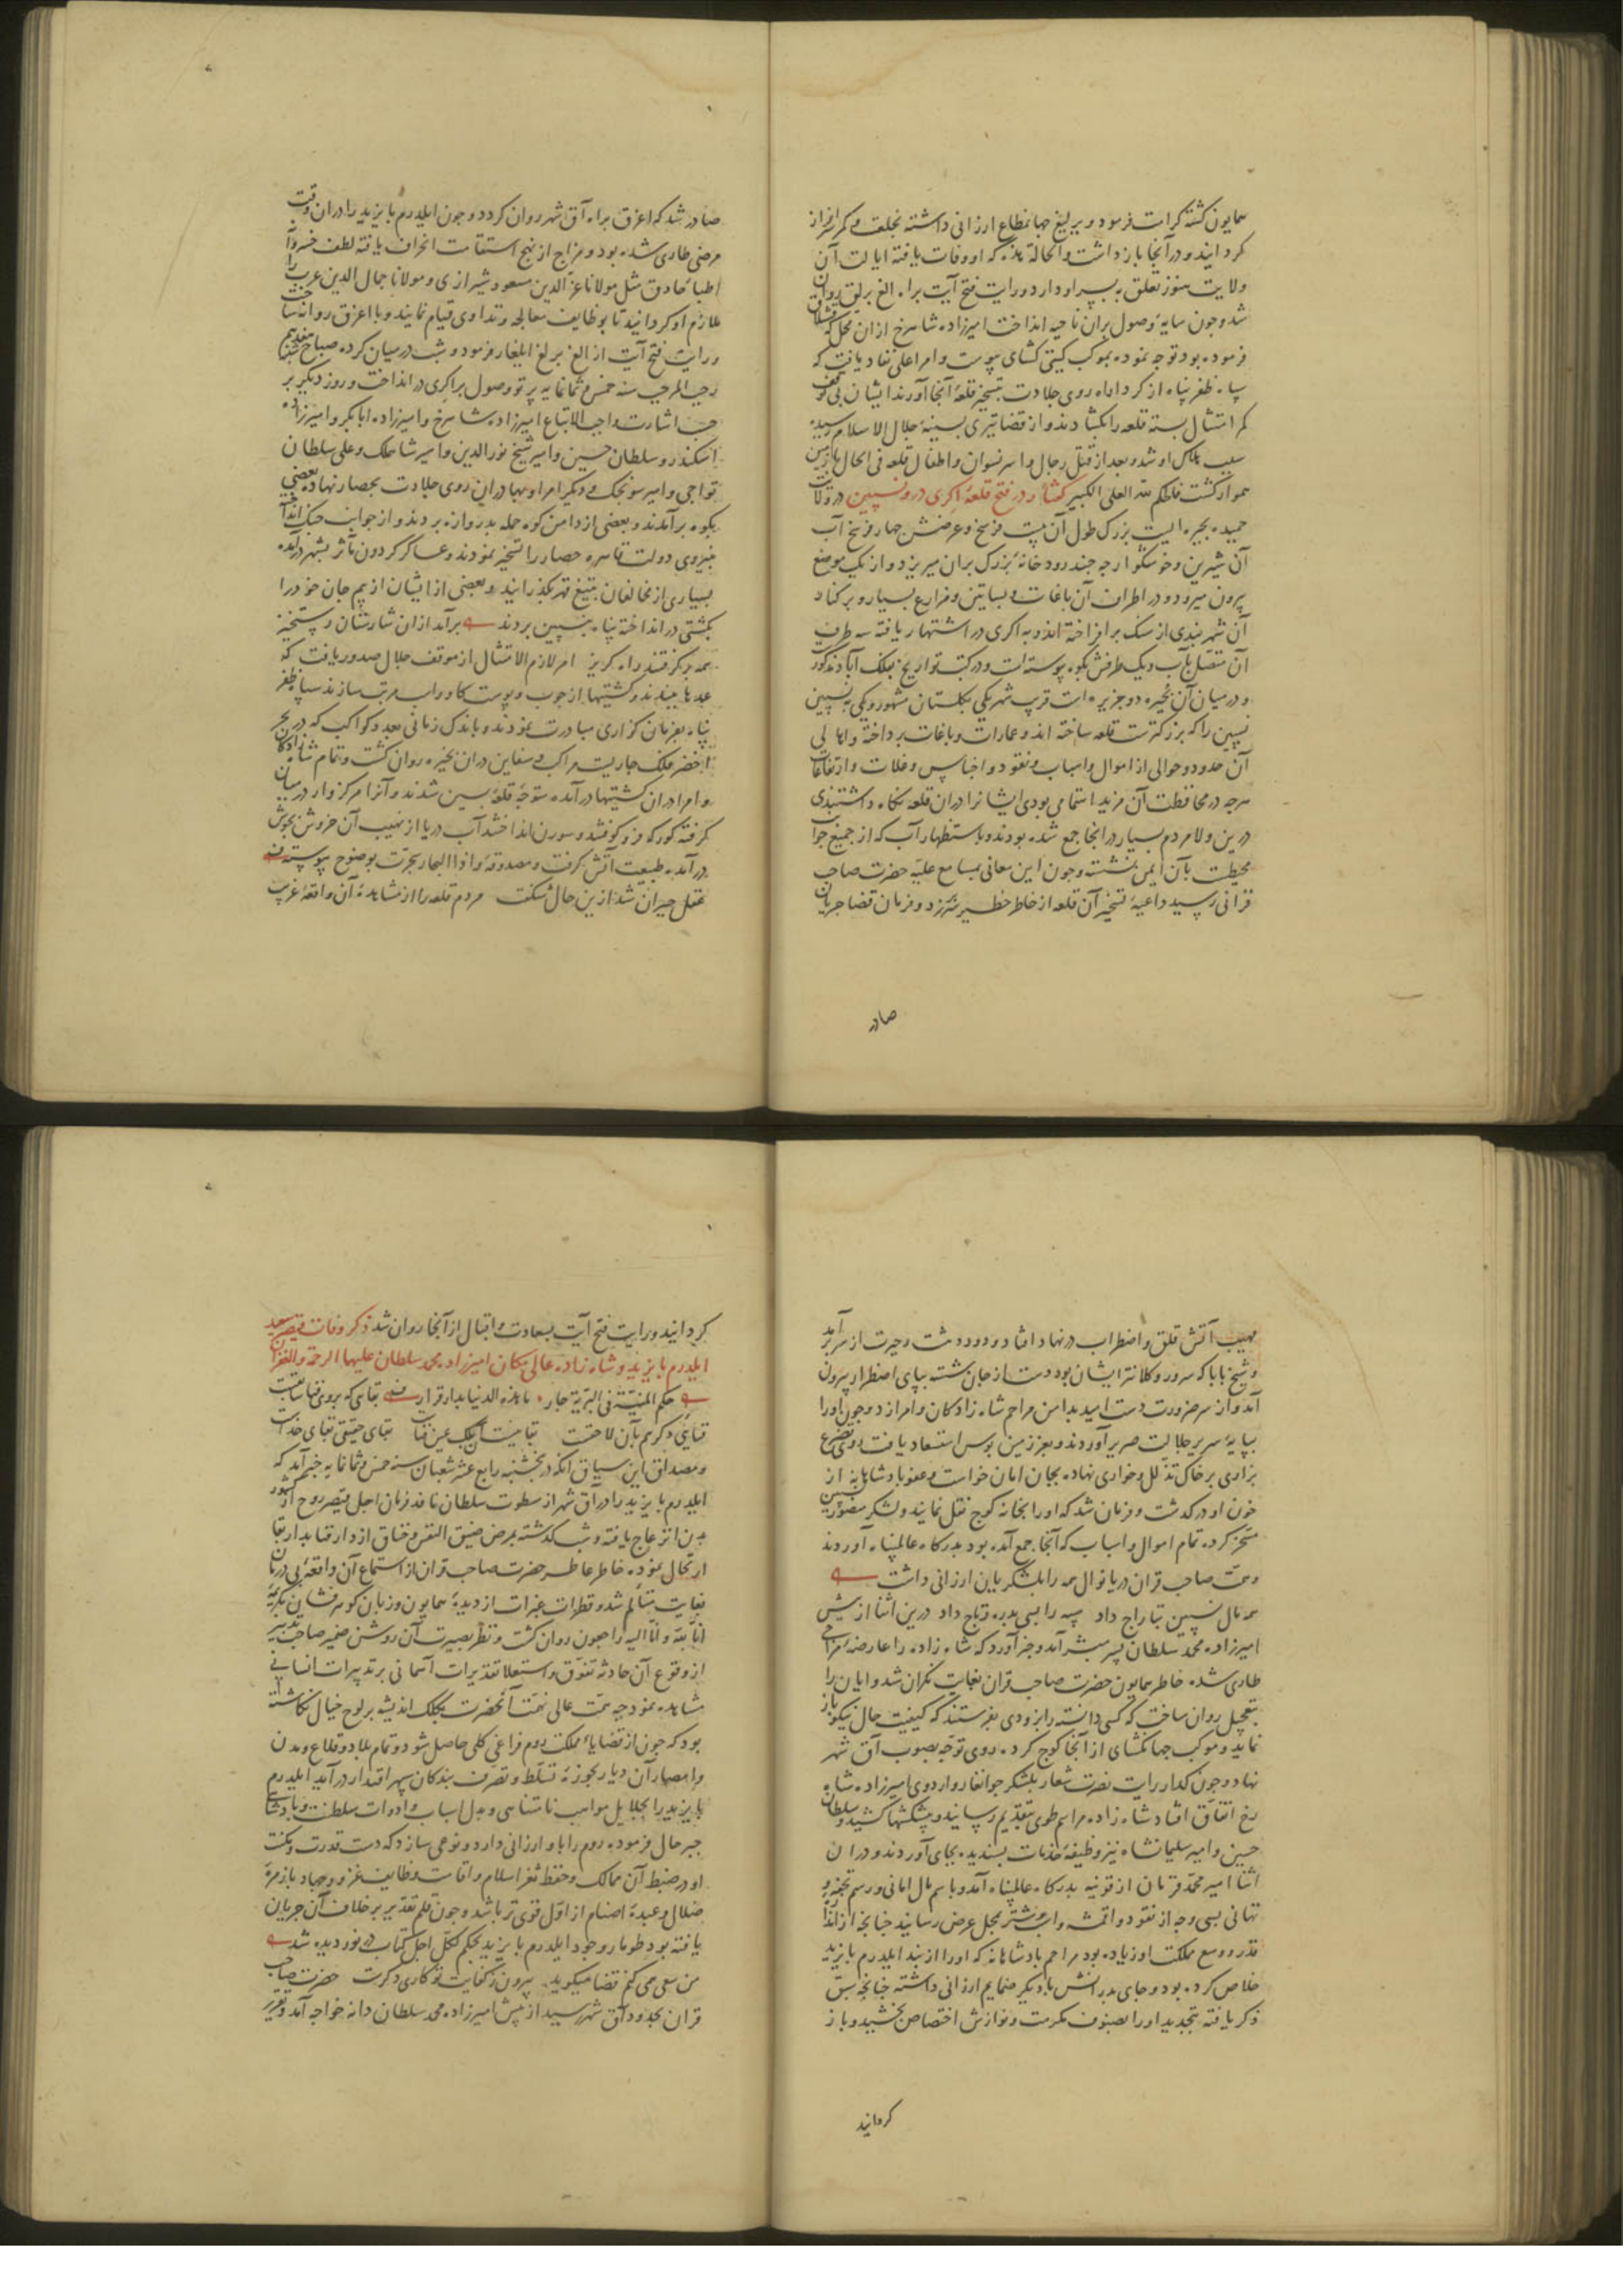 همایون گشته کرامت فرمود و یرلیغ جهانمطاع ارزانی داشته بخلعت و کمر سرافراز
کردانید و در آنجا باز داشت والحالة هذه که او وفات یافته ایالت آن
ولایت هنوز تعلق به پسر او دارد و رایت فتح آیت براه الغ برلغ روان
شد و چون سایهٔ وصول بران ناحیه انداخت امیرزاده شاهرخ ازان محل که قشلاق
فرموده بود توجه نموده بموکب کیتی کشای پیوست و امر اعلی نفاد یافت که
سپاه ظفر پناه از کرد راه روی جلادت بتسخیر قلعهٔ آنجا آورند ایشان بی توقف
کمر امتثال بسته قلعه را بکشادند و از قضا تیری بسینهٔ جلال الاسلام رسید
سبب هلاک او شد و بعد از قتل رجال و اسر نسوان و اطفال قلعه فی الحال با زمین
هموار کشت فالحکم لله العلی الکبیر کفتار در فتح قلعهٔ اکری در و نسپین در ولایت
حمید بحیره ایست بزرک طول آن بیست فرسخ و عرضش چهار فرسخ آب
آن شیرین و خوشکوار چه چند رودخانهٔ بزرک بران میریزد و از یک موضع
بیرون میرود و در اطراف آن باغات و بساتین و مزارع بسیار و بر کنار
آن شهربندی از سنک برافراخته اند و به اکری در اشتهار یافته سه طرف
آن متصل بآب و یک طرفش بکوه پیوسته است و در کتب تواریخ بفلک آباد مذکور
و در میان آن بحیره دو جزیره است قریب شهر یکی بکلستان مشهور و یکی به نسپین
نسپین را که بزرکترست قلعه ساخته اند و عمارات و باغات پرداخته و اهالی
آن حدود و حوالی از اموال و اسباب و نقود و اجناس و غلات و ارتفاعات
هرچه در محافظت آن مزید اهتمامی بودی ایشانرا در آن قلعه نکاه داشتندی
درین ولا مردم بسیار در انجا جمع شده بودند و باستظهار آب که از جمیع جوانب
محیطست بآن ایمن نشسته و چون این معانی بمسامع علیّه حضرت صاحب
قرانی رسید داعیهٔ تسخیر آن قلعه از خاطر خطیر سرزد و فرمان قضا جریان
صادر
صادر شد که اغرق براه آق شهر روان کردد و چون ایلدرم بایزید را دران وقت
مرضی طاری شده بود و مزاج از نهج استقامت انحراف یافته لطف خسروانه
اطباء حاذق مثل مولانا عزّ الدین مسعود شیرازی و مولانا جمال الدین عرب را
ملازم او کردانید تا بوظایف معالجه و تداوی قیام نمایند و با اغرق روانه ساخت
و رایت فتح آیت از الغ برلغ ایلغار فرمود و شب درمیان کرده صباح شنبه هفدهم
رجب المرجب سنه خمس و ثمانمایه پرتو وصول بر اکری در انداخت و روز دیکر بر
حسب اشارت واجب الاتباع امیرزاده شاهرخ و امیرزاده ابابکر و امیرزاده
اسکندر و سلطان حسین و امیر شیخ نور الدین و امیر شاهملک و علی سلطان
تواجی و امیر سونجک و دیکر امرا و بهادران روی جلادت بحصار نهاده بعضی
بکوه برآمدند و بعضی از دامن کوه حمله بدروازه بردند و از جوانب جنک انداخته
بنیروی دولت قاهره حصار را تسخیر نمودند و عساکر کردون مآثر بشهر درآمده
بسیاری از مخالفان بتیغ قهر بکذرانیدند و بعضی از ایشان از بیم جان خود را
بکشتی در انداخته پناه به نسپین بردند برآمد ازان شارستان رستخیز
همه برکرفتند راه کریز امر لازم الامتثال از موقف جلال صدور یافت که
عمدها ببندند و کشتیها از چوب و پوست کاو و اسب مرتب سازند سپاه ظفر
پناه بفرمان کزاری مبادرت نمودند و باندک زمانی بعدد کواکب که در بحر
اخضر فلک جاریست مراکب و سفاین دران بحیره روان کشت و تمام شاهزادکان
و امرا دران کشتیها درآمده متوجّه قلعهٔ نسپین شدند و آنرا مرکزوار درمیان
کرفته کورکه فرو کوفتند و سورن انداختند آب دریا از نهیب آن خروش بجوش
درآمده طبیعت آتش کرفت و مصدوقهٔ واذا البحار سجّرت بوضوح پیوست
عقل حیران شد ازین حال شکفت مردم قلعه را از مشاهدهٔ آن واقعهٔ غریب
مهیب آتش قلق و اضطراب در نهاد افتاد و دود دهشت و حیرت از سر برآمد
و شیخ بابا که سرور و کلانتر ایشان بود دست از جان شسته بپای اضطرار بیرون
آمد و از سر ضرورت دست امید بدامن مراحم شاهزادکان و امرا زد و چون او را
بپایهٔ سریر جلالت مصیر آوردند و بعز زمین بوس استسعاد یافت روی تضرع
بزاری بر خاک تذلل و خواری نهاده بجان امان خواست و عفو پادشاهانه از
خون او در کذشت و فرمان شد که او را بخانه کوچ نقل نمایند و لشکر منصور نسپین
مسخر کرده تمام اموال و اسباب که آنجا جمع آمده بود بدرکاه عالمپناه آوردند
و همت صاحب قران دریانوال همه را بلشکریان ارزانی داشت
همه مال نسپین بتاراج داد سپه را بسی بدره و تاج داد درین اثنا از پیش
امیرزاده محمد سلطان پسر مبشر آمد و خبر آورد که شاهزاده را عارضهٔ مزاجی
طاری شده خاطر همایون حضرت صاحب قران بغایت نکران شد و ایان را
بتعجیل روان ساخت که کسی دانسته را بزودی بفرستند که کیفیت حال نیکو باز
نماید و موکب جهانکشای از آنجا کوچ کرده روی توجّه بصوب آق شهر
نهاد و چون کذار رایت نصرت شعار بلشکر جوانغار و اردوی امیرزاده شاه
رخ اتفاق افتاد شاهزاده مراسم طوی بتقدیم رسانید و پیشکشها کشید و سلطان
حسین و امیر سلیمانشاه نیز وظیفهٔ خدمات پسندیده بجای آوردند و دران
اثنا امیر محمد قرمان از قونیه بدرکاه عالمپناه آمد و باسم مال امانی و رسم تحفه و
تهانی بسی وجه از نقود و اقمشه و اسب و شتر بمحل عرض رسانید چنانچه از اندازه
قدر و وسع مملکت او زیاده بود مراحم پادشاهانه که او را از بند ایلدرم بایزید
خلاص کرده بود و جای پدرانش با دیکر ضمایم ارزانی داشته چنانچه سبق
ذکر یافته بتجدید او را بصنوف مکرمت و نوازش اختصاص بخشید و باز
کردانید
کردانید و رایت فتح آیت بسعادت و اقبال از آنجا روان شد ذکر وفات قیصر سعید
ایلدرم بایزید و شاهزاده عالی مکان امیرزاده محمد سلطان علیهما الرحمة والغفران
حکم المنیّة فی البریّة جار ما هذه الدنیا بدار قرار بقایی که بروی فنا سابقست
فنایی دکر هم بآن لاحقست بقا نیست آن بلک عین فناست بقای حقیقی بقای خداست
و مصداق این سیاق آنکه در پنجشنبه رابع عشر شعبان سنه خمس و ثمانمایه خبر آمد که
ایلدرم بایزید را در آق شهر از سطوت سلطان نافذ فرمان اجل قیصر روح از کشور
بدن انزعاج یافته و شب کذشته بمرض ضیق النفس و خناق از دار فنا بدار بقا
ارتحال نموده خاطر عاطر حضرت صاحب قران از استماع آن واقعهٔ بی درمان
بغایت متألّم شد و قطرات عبرات از دیدهٔ همایون و زبان کوهرفشان بکریمهٔ
انّا لله و انّا الیه راجعون روان کشت و نظر بصیرت آن روشن ضمیر صاحب تدبیر
از وقوع آن حادثه تفوّق و استعلاء تقدیرات آسمانی بر تدبیرات انسانی
مشاهده نمود چه همت عالی نهمت آنحضرت بکلک اندیشه بر لوح خیال نکاشته
بود که چون از قضایاء مملکت روم فراغی کلی حاصل شود و تمام بلاد و قلاع و مدن
و امصار آن دیار بحوزهٔ تسلّط و تصرف بندکان سپهر اقتدار درآید ایلدرم
بایزید را بجلایل مواهب نامتناهی و بذل اسباب و ادوات سلطنت و پادشاهی
جبر حال فرموده روم را باو ارزانی دارد و نوعی سازد که دست قدرت و مکنت
او در ضبط آن ممالک و حفظ ثغر اسلام و اقامت وظایف غزو و جهاد با زمرهٔ
ضلال و عبدهٔ اصنام از اوّل قوی تر باشد و چون قلم تقدیر بر خلاف آن جریان
یافته بود طومار وجود ایلدرم بایزید بحکم لکلّ اجل کتاب در نوردیده شد
من سعی همی کنم قضا میکوید بیرون ز کفایت تو کاری دکرست حضرت صاحب
قران بحدود آق شهر رسید از پیش امیرزاده محمد سلطان دانه خواجه آمد و تقریر